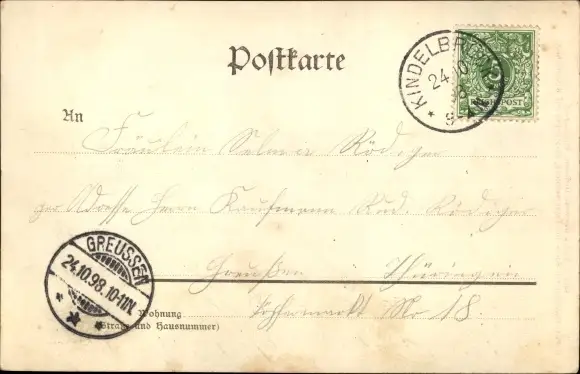 Postkarte
KINDELBRÜCK
24 10
98
REICHSPOST
An
Fräulein Selma Rödiger
per Adresse Herrn Kaufmann Rud. Rödiger
GREUSSEN
24.10.98.10-11N.
Greußen Thüringen
Wohnung
(Straße und Hausnummer)
No 18.